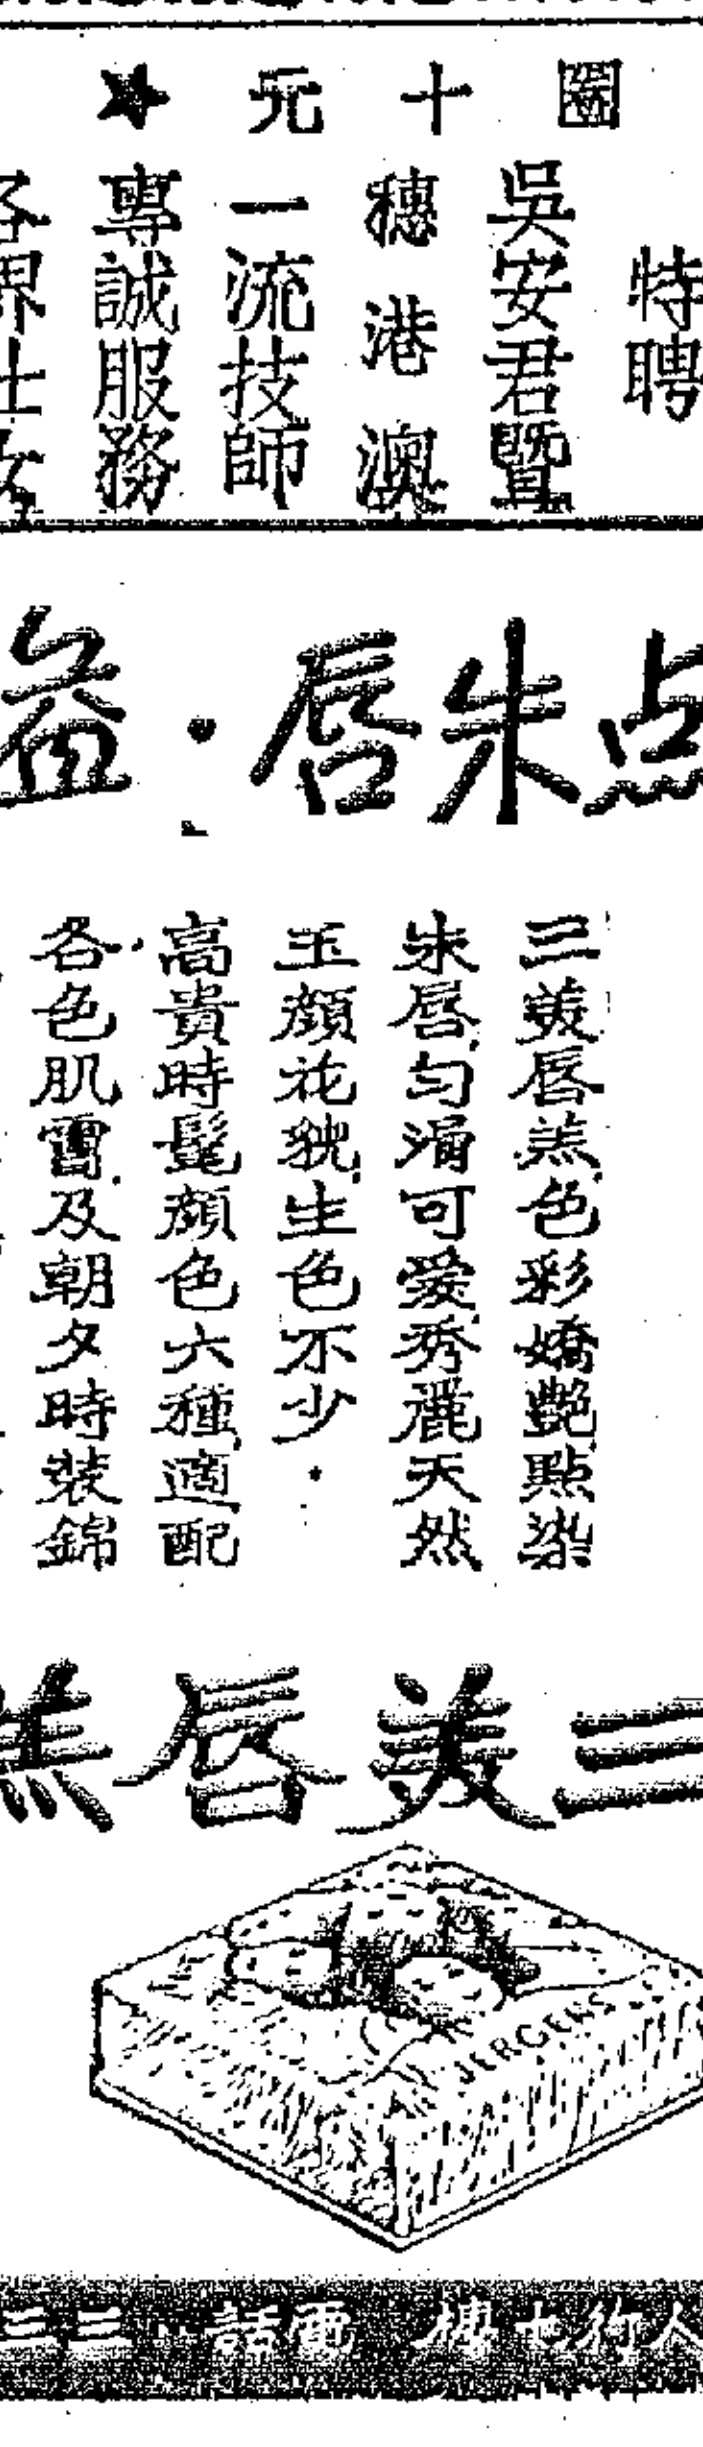 圈十元★
特聘
吳安君暨
穗港澳
一流技師
專誠服務
各界仕女
点朱唇·益
三美唇羔色彩嬌艷點染
朱唇勻滑可愛秀麗天然
玉顏花貌生色不少·
高貴時髦顏色六種適配
各色肌膚及朝夕時裝錦
三美唇羔
JERGENS
人行七樓 電話 二三